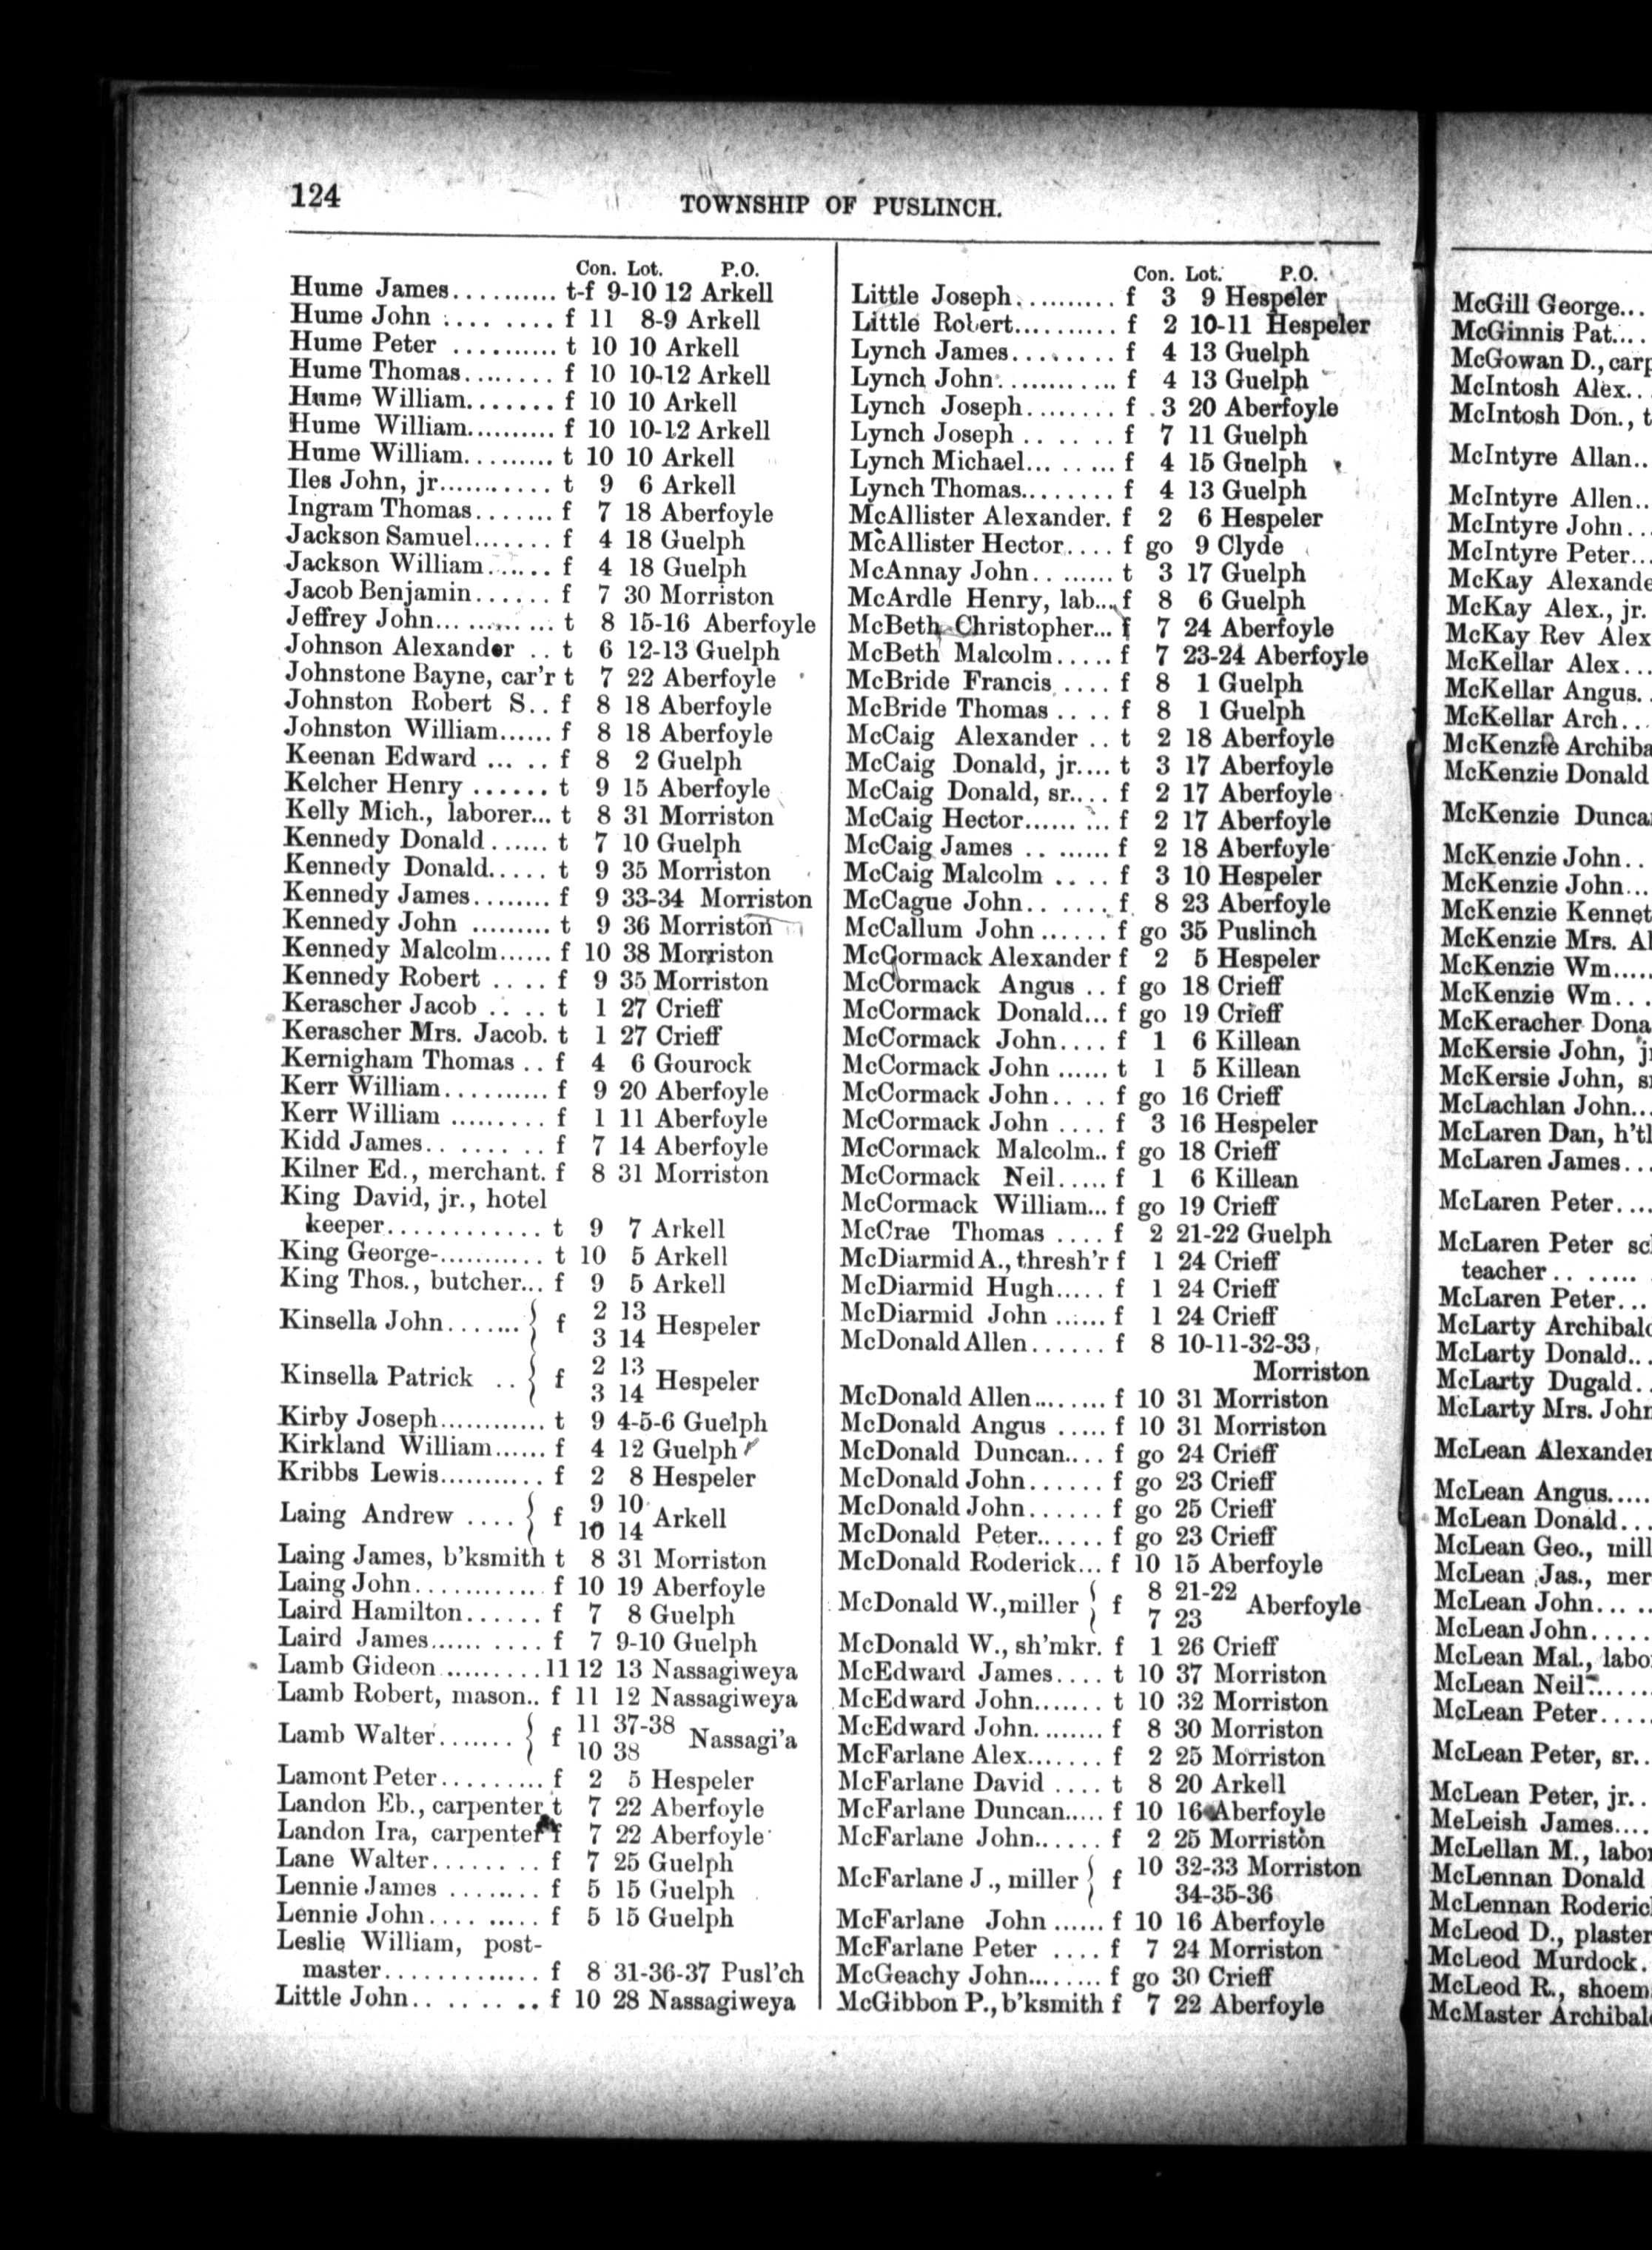 124
TOWNSHIP OF PUSLINCH.
Con. Lot. P.O.
Hume James.......... t-f 9-10 12 Arkell
Hume John ..... .... f 11 8-9 Arkell
Hume Peter .......... t 10 10 Arkell
Hume Thomas........ f 10 10-12 Arkell
Hume William....... f 10 10 Arkell
Hume William.......... f 10 10-12 Arkell
Hume William......... t 10 10 Arkell
Iles John, jr........... t 9 6 Arkell
Ingram Thomas....... f 7 18 Aberfoyle
Jackson Samuel....... f 4 18 Guelph
Jackson William...... f 4 18 Guelph
Jacob Benjamin...... f 7 30 Morriston
Jeffrey John... ......... t 8 15-16 Aberfoyle
Johnson Alexander .. t 6 12-13 Guelph
Johnstone Bayne, car'r t 7 22 Aberfoyle
Johnston Robert S.. f 8 18 Aberfoyle
Johnston William...... f 8 18 Aberfoyle
Keenan Edward ... .. f 8 2 Guelph
Kelcher Henry ...... t 9 15 Aberfoyle
Kelly Mich., laborer... t 8 31 Morriston
Kennedy Donald ...... t 7 10 Guelph
Kennedy Donald..... t 9 35 Morriston
Kennedy James........ f 9 33-34 Morriston
Kennedy John ......... t 9 36 Morriston
Kennedy Malcolm...... f 10 38 Morriston
Kennedy Robert .... f 9 35 Morriston
Kerascher Jacob .... t 1 27 Crieff
Kerascher Mrs. Jacob. t 1 27 Crieff
Kernigham Thomas .. f 4 6 Gourock
Kerr William.......... f 9 20 Aberfoyle
Kerr William ......... f 1 11 Aberfoyle
Kidd James.. ...... .. f 7 14 Aberfoyle
Kilner Ed., merchant. f 8 31 Morriston
King David, jr., hotel
keeper............. t 9 7 Arkell
King George-.......... t 10 5 Arkell
King Thos., butcher... f 9 5 Arkell
Kinsella John....... { f 2 13 Hespeler
3 14
Kinsella Patrick .. { f 2 13 Hespeler
3 14
Kirby Joseph............ t 9 4-5-6 Guelph
Kirkland William...... f 4 12 Guelph
Kribbs Lewis........... f 2 8 Hespeler
Laing Andrew .... { f 9 10 Arkell
10 14
Laing James, b'ksmith t 8 31 Morriston
Laing John............ f 10 19 Aberfoyle
Laird Hamilton...... f 7 8 Guelph
Laird James...... .... f 7 9-10 Guelph
Lamb Gideon .........11 12 13 Nassagiweya
Lamb Robert, mason.. f 11 12 Nassagiweya
Lamb Walter....... { f 11 37-38 Nassagi'a
10 38
Lamont Peter......... f 2 5 Hespeler
Landon Eb., carpenter t 7 22 Aberfoyle
Landon Ira, carpenter f 7 22 Aberfoyle
Lane Walter....... .. f 7 25 Guelph
Lennie James ........ f 5 15 Guelph
Lennie John.... ..... f 5 15 Guelph
Leslie William, post-
master............. f 8 31-36-37 Pusl'ch
Little John.. ...... .. f 10 28 Nassagiweya
Con. Lot. P.O.
Little Joseph.......... f 3 9 Hespeler
Little Robert.......... f 2 10-11 Hespeler
Lynch James........ f 4 13 Guelph
Lynch John............ f 4 13 Guelph
Lynch Joseph........ f 3 20 Aberfoyle
Lynch Joseph ...... f 7 11 Guelph
Lynch Michael... ..... f 4 15 Guelph
Lynch Thomas........ f 4 13 Guelph
McAllister Alexander. f 2 6 Hespeler
McAllister Hector.... f go 9 Clyde
McAnnay John.. ...... t 3 17 Guelph
McArdle Henry, lab... f 8 6 Guelph
McBeth Christopher... f 7 24 Aberfoyle
McBeth Malcolm..... f 7 23-24 Aberfoyle
McBride Francis .... f 8 1 Guelph
McBride Thomas .... f 8 1 Guelph
McCaig Alexander .. t 2 18 Aberfoyle
McCaig Donald, jr.... t 3 17 Aberfoyle
McCaig Donald, sr.... f 2 17 Aberfoyle
McCaig Hector...... ... f 2 17 Aberfoyle
McCaig James .. ...... f 2 18 Aberfoyle
McCaig Malcolm .... f 3 10 Hespeler
McCague John.. ..... f 8 23 Aberfoyle
McCallum John ...... f go 35 Puslinch
McCormack Alexander f 2 5 Hespeler
McCormack Angus .. f go 18 Crieff
McCormack Donald... f go 19 Crieff
McCormack John.... f 1 6 Killean
McCormack John ...... t 1 5 Killean
McCormack John.... f go 16 Crieff
McCormack John .... f 3 16 Hespeler
McCormack Malcolm.. f go 18 Crieff
McCormack Neil..... f 1 6 Killean
McCormack William... f go 19 Crieff
McCrae Thomas .... f 2 21-22 Guelph
McDiarmid A., thresh'r f 1 24 Crieff
McDiarmid Hugh..... f 1 24 Crieff
McDiarmid John ...... f 1 24 Crieff
McDonald Allen...... f 8 10-11-32-33,
Morriston
McDonald Allen......... f 10 31 Morriston
McDonald Angus ..... f 10 31 Morriston
McDonald Duncan.... f go 24 Crieff
McDonald John...... f go 23 Crieff
McDonald John...... f go 25 Crieff
McDonald Peter...... f go 23 Crieff
McDonald Roderick... f 10 15 Aberfoyle
McDonald W.,miller { f 8 21-22 Aberfoyle
7 23
McDonald W., sh'mkr. f 1 26 Crieff
McEdward James.... t 10 37 Morriston
McEdward John....... t 10 32 Morriston
McEdward John........ f 8 30 Morriston
McFarlane Alex....... f 2 25 Morriston
McFarlane David .... t 8 20 Arkell
McFarlane Duncan..... f 10 16 Aberfoyle
McFarlane John...... f 2 25 Morriston
McFarlane J., miller { f 10 32-33 Morriston
34-35-36
McFarlane John ...... f 10 16 Aberfoyle
McFarlane Peter .... f 7 24 Morriston
McGeachy John........ f go 30 Crieff
McGibbon P., b'ksmith f 7 22 Aberfoyle
McGill George...
McGinnis Pat....
McGowan D., carp
McIntosh Alex..
McIntosh Don., t
McIntyre Allan..
McIntyre Allen..
McIntyre John...
McIntyre Peter...
McKay Alexande
McKay Alex., jr.
McKay Rev Alex
McKellar Alex...
McKellar Angus.
McKellar Arch...
McKenzie Archiba
McKenzie Donald
McKenzie Dunca
McKenzie John..
McKenzie John...
McKenzie Kennet
McKenzie Mrs. Al
McKenzie Wm.....
McKenzie Wm...
McKeracher Dona
McKersie John, j
McKersie John, s
McLachlan John...
McLaren Dan, h'tl
McLaren James...
McLaren Peter....
McLaren Peter sc
teacher.. .....
McLaren Peter...
McLarty Archibald
McLarty Donald...
McLarty Dugald..
McLarty Mrs. John
McLean Alexander
McLean Angus.....
McLean Donald...
McLean Geo., mill
McLean Jas., mer
McLean John... ..
McLean John.....
McLean Mal., labo
McLean Neil......
McLean Peter....
McLean Peter, sr..
McLean Peter, jr..
MeLeish James....
McLellan M., labo
McLennan Donald
McLennan Roderic
McLeod D., plaster
McLeod Murdock.
McLeod R., shoem
McMaster Archibal